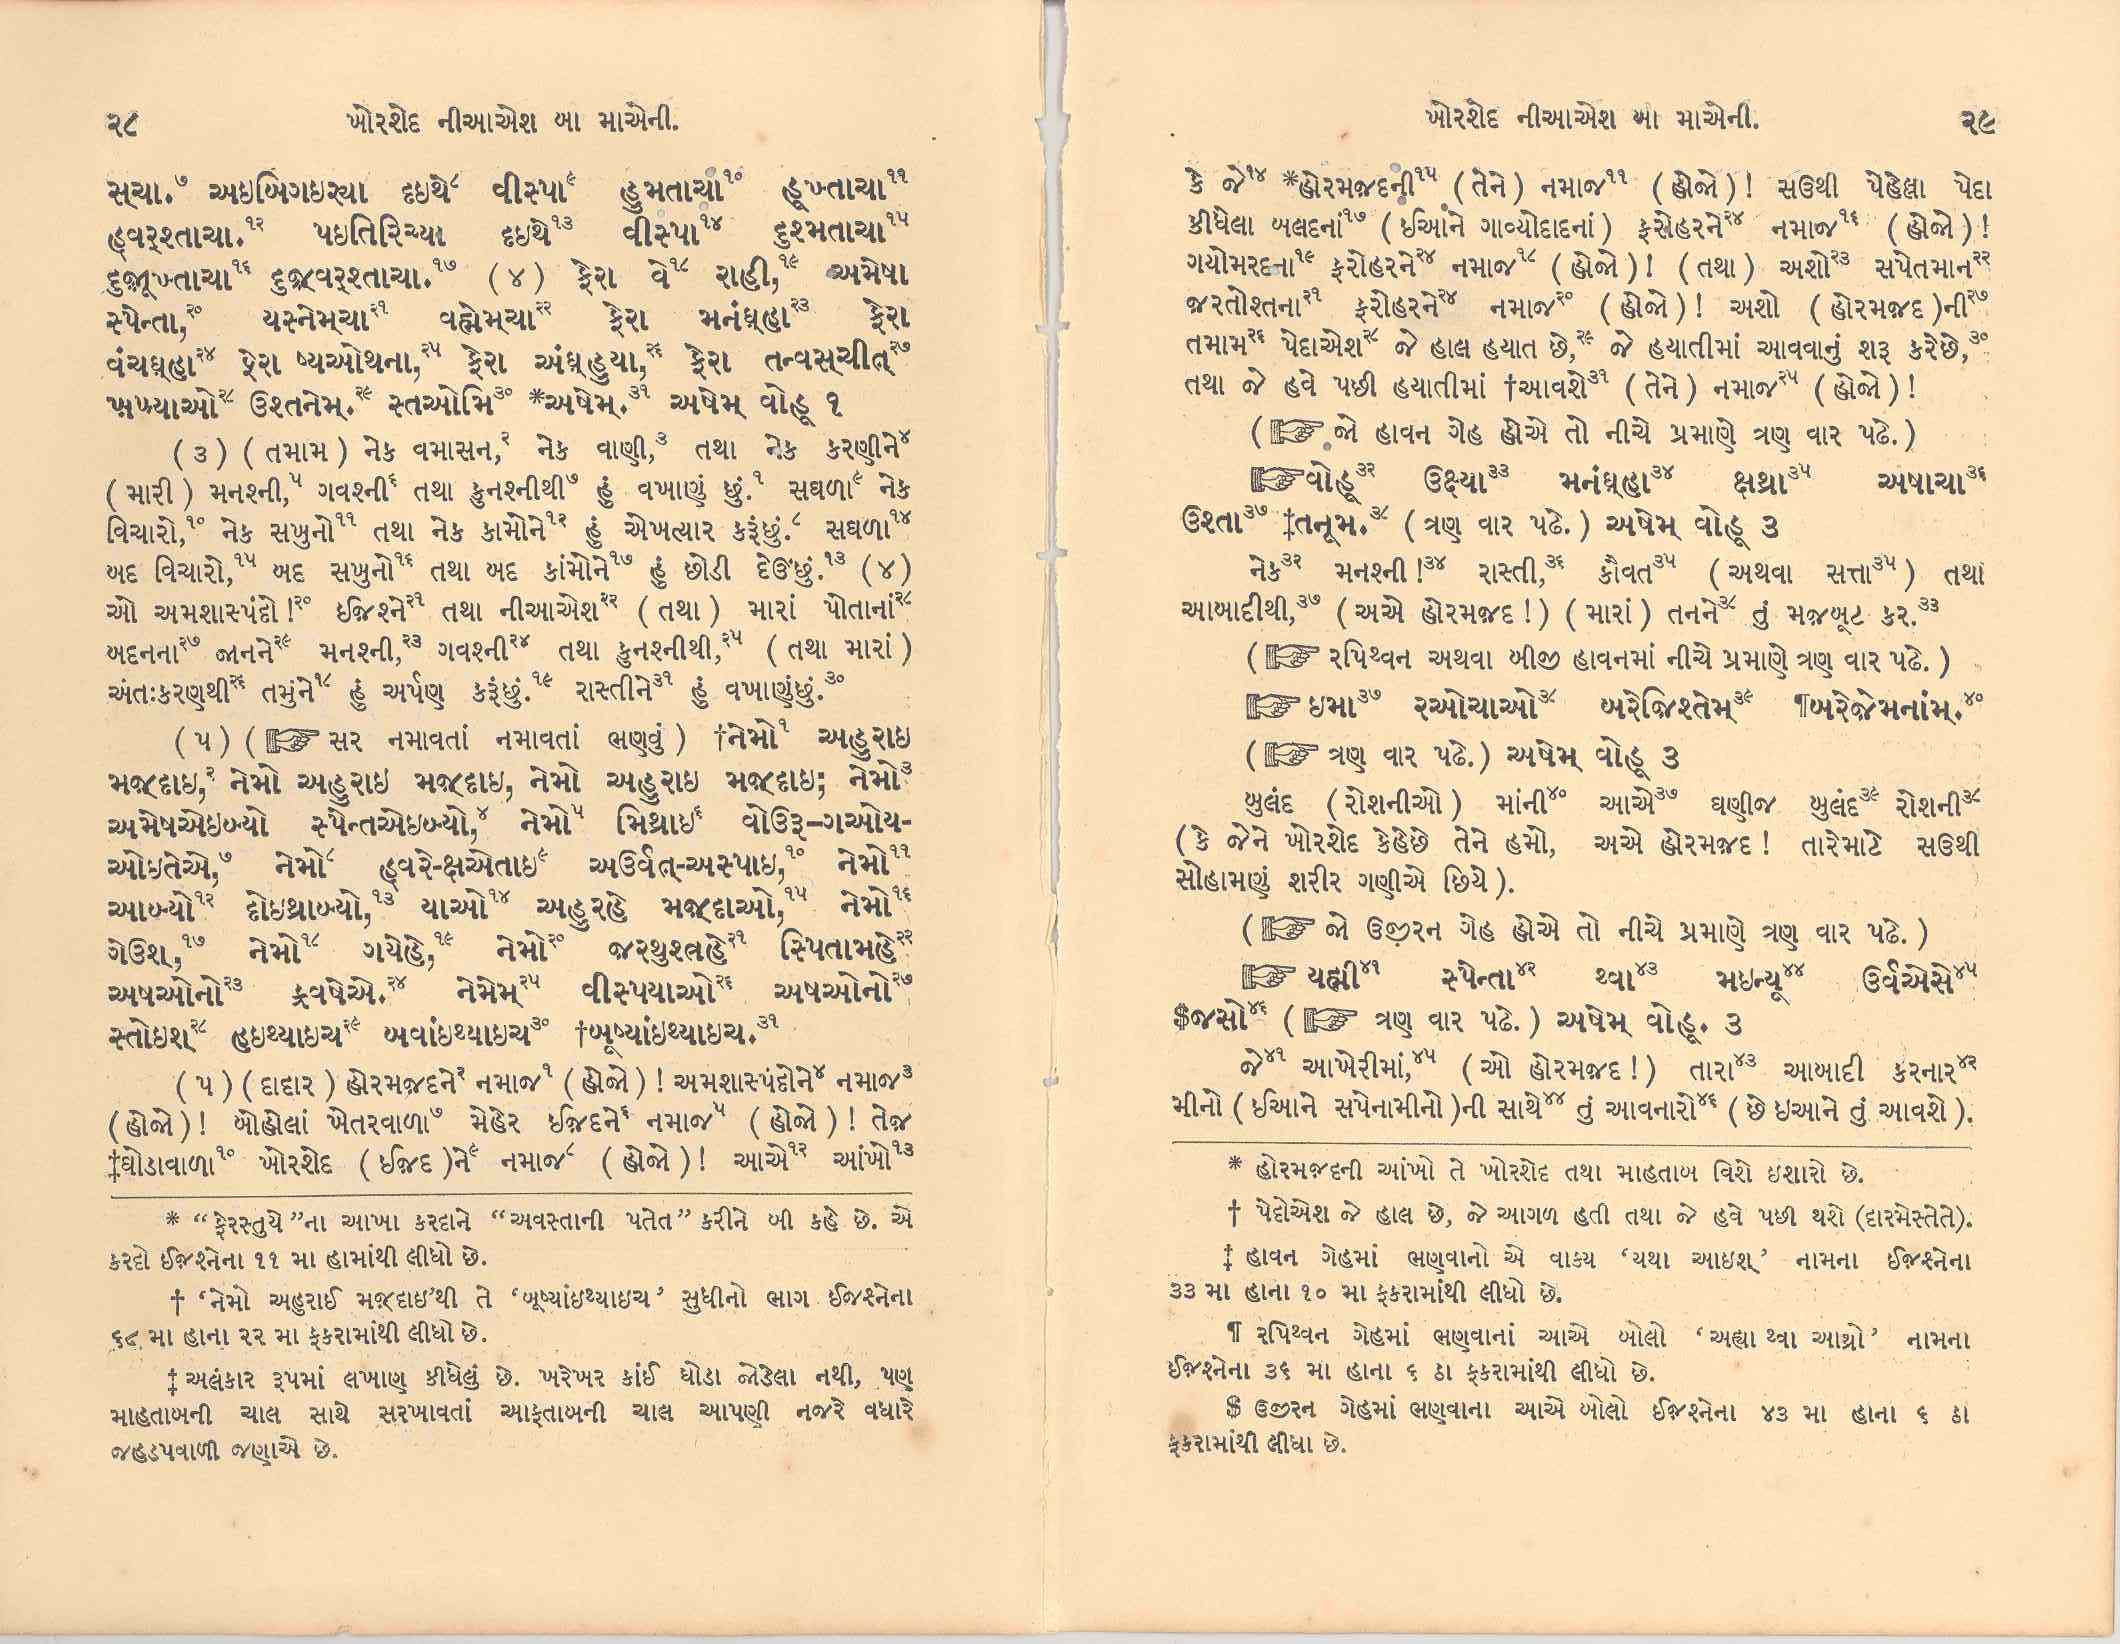 ૨૮ ખોરશેદ નીઆએશ બા માએની.
સ્ચા.૭ અઇબિગઇરયા દઇથે૮ વીસ્પા૯ હુમતાચા૧૦ હૂખ્તાચા૧૧
હ્વર્શ્તાચા.૧૨ પઇતિરિચ્યા દઇથે૧૩ વીસ્પા૧૪ દુશ્મતાચા૧૫
દુજ઼ૂખ્તાચા૧૬ દુજ઼્વર્શ્તાચા.૧૭ (૪) ફ઼ેરા વે૧૮ રાહી,૧૯ અમેષા
સ્પેન્તા,૨૦ યસ્નેમ્ચા૨૧ વહ્મેમ્ચા૨૨ ફ઼ેરા મનંઘ્હા૨૩ ફ઼ેરા
વંચઘ્હા૨૪ ફ઼ેરા ષ્યઓથના,૨૫ ફ઼ેરા અંઘ્હુયા,૨૬ ફ઼ેરા તન્વસ્ચીત્૨૭
ખ઼ખ્યાઓ૨૮ ઉશ્તનેમ્.૨૯ સ્તઓમિ૩૦ *અષેમ્.૩૧ અષેમ્ વોહૂ ૧
(૩) (તમામ) નેક વમાસન,૨ નેક વાણી,૩ તથા નેક કરણીને૪
(મારી) મનશ્ની,૫ ગવશ્ની૬ તથા કુનશ્નીથી૭ હું વખાણું છું.૧ સઘળા૯ નેક
વિચારો,૧૦ નેક સખુનો૧૧ તથા નેક કામોને૧૨ હું એખત્યાર કરૂંછું.૮ સઘળા૧૪
બદ વિચારો,૧૫ બદ સખુનો૧૬ તથા બદ કાંમોને૧૭ હું છોડી દેઊંછું.૧૩ (૪)
ઓ અમશાસ્પંદો!૨૦ ઇજ઼શ્ને૨૧ તથા નીઆએશ૨૨ (તથા) મારાં પોતાનાં૨૮
બદનના૨૭ જાનને૨૯ મનશ્ની,૨૩ ગવશ્ની૨૪ તથા કુનશ્નીથી,૨૫ (તથા મારાં)
અંતઃકરણથી૨૬ તમુંને૧૮ હું અર્પણ કરૂંછું.૧૯ રાસ્તીને૩૧ હું વખાણુંછું.૩૦
(૫) (☞ સર નમાવતાં નમાવતાં ભણવું) †નેમો૧ અહુરાઇ
મજ઼્દાઇ,૨ નેમો અહુરાઇ મજ઼્દાઇ, નેમો અહુરાઇ મજ઼્દાઇ; નેમો૩
અમેષએઇબ્યો સ્પેન્તએઇબ્યો,૪ નેમો૫ મિથ્રાઇ૬ વોઉરૂ-ગઓય-
ઓઇતેએ,૭ નેમો૮ હ્વરે-ક્ષએતાઇ૯ અઉર્વત્-અસ્પાઇ,૧૦ નેમો૧૧
આબ્યો૧૨ દોઇથ્રાબ્યો,૧૩ યાઓ૧૪ અહુરહે મજ઼્દાઓ,૧૫ નેમો૧૬
ગેઉશ્,૧૭ નેમો૧૮ ગયેહે,૧૯ નેમો૨૦ જ઼રથુશ્ત્રહે૨૧ સ્પિતામહે૨૨
અષઓનો૨૩ ફ્રવષેએ.૨૪ નેમેમ્૨૫ વીસ્પયાઓ૨૬ અષઓનો૨૭
સ્તોઇશ્૨૮ હઇથ્યાઇચ૨૯ બવાંઇથ્યાઇચ૩૦ †બૂષ્યાંઇથ્યાઇચ.૩૧
(૫) (દાદાર) હોરમજ઼દને૨ નમાજ૧ (હોજો)! અમશાસ્પંદોને૪ નમાજ૩
(હોજો)! બોહોલાં ખેતરવાળા૭ મેહેર ઈજ઼દને૬ નમાજ૫ (હોજો)! તેજ
‡ઘોડાવાળા૧૦ ખોરશેદ (ઈજ઼દ)ને૯ નમાજ૮ (હોજો)! આએ૧૨ આંખો૧૩
* “ફ઼ેરસ્તુયે”ના આખા કરદાને “અવસ્તાની પતેત” કરીને બી કહે છે. એ
કરદો ઈજ઼શ્નેના ૧૧ મા હામાંથી લીધો છે.
† ‘નેમો અહુરાઈ મજ઼્દાઇ’થી તે ‘બૂષ્યાંઇથ્યાઇચ’ સુધીનો ભાગ ઈજ઼શ્નેના
૬૮ મા હાના ૨૨ મા ફકરામાંથી લીધો છે.
‡ અલંકાર રૂપમાં લખાણ કીધેલું છે. ખરેખર કાંઈ ઘોડા જોડેલા નથી, પણ
માહતાબની ચાલ સાથે સરખાવતાં આફતાબની ચાલ આપણી નજરે વધારે
જહડપવાળી જણાએ છે.
ખોરશેદ નીઆએશ બા માએની. ૨૯
કે જે૧૪ *હોરમજ઼દની૧૫ (તેને) નમાજ૧૧ (હોજો)! સઉથી પેહેલ્લા પેદા
કીધેલા બલદનાં૧૭ (ઈઆંને ગાવ્યોદાદનાં) ફરોહરને૨૪ નમાજ૧૬ (હોજો)!
ગયોમરદના૧૯ ફરોહરને૨૪ નમાજ૧૮ (હોજો)! (તથા) અશો૨૩ સપેતમાન૨૨
જરતોશ્તના૨૧ ફરોહરને૨૪ નમાજ૨૦ (હોજો)! અશો (હોરમજ઼દ)ની૨૭
તમામ૨૬ પેદાએશ૨૮ જે હાલ હયાત છે,૨૯ જે હયાતીમાં આવવાનું શરૂ કરેછે,૩૦
તથા જે હવે પછી હયાતીમાં †આવશે૩૧ (તેને) નમાજ૨૫ (હોજો)!
(☞ જો હાવન ગેહ હોએ તો નીચે પ્રમાણે ત્રણ વાર પઢે.)
☞ વોહૂ૩૨ ઉક્ષ્યા૩૩ મનંઘ્હા૩૪ ક્ષથ્રા૩૫ અષાચા૩૬
ઉશ્તા૩૭ ‡તનૂમ.૩૮ (ત્રણ વાર પઢે.) અષેમ્ વોહૂ ૩
નેક૩૨ મનશ્ની!૩૪ રાસ્તી,૩૬ કૌવત૩૫ (અથવા સત્તા૩૫) તથા
આબાદીથી,૩૭ (અએ હોરમજ઼દ!) (મારાં) તનને૩૮ તું મજબૂટ કર.૩૩
(☞ રપિથ્વન અથવા બીજી હાવનમાં નીચે પ્રમાણે ત્રણ વાર પઢે.)
☞ ઇમા૩૭ રઓચાઓ૩૮ બરેજ઼િશ્તેમ્૩૯ ¶બરેજ઼ેમનાંમ્.૪૦
(☞ ત્રણ વાર પઢે.) અષેમ્ વોહૂ ૩
બુલંદ (રોશનીઓ) માંની૪૦ આએ૩૭ ઘણીજ બુલંદ૩૯ રોશની૩૮
(કે જેને ખોરશેદ કેહેછે તેને હમો, અએ હોરમજ઼દ! તારેમાટે સઉથી
સોહામણું શરીર ગણીએ છિયે).
(☞ જો ઉજ઼ીરન ગેહ હોએ તો નીચે પ્રમાણે ત્રણ વાર પઢે.)
☞ યહ્મી૪૧ સ્પેન્તા૪૨ થ્વા૪૩ મઇન્યૂ૪૪ ઉર્વએસે૪૫
$જસો૪૬ (☞ ત્રણ વાર પઢે.) અષેમ્ વોહૂ. ૩
જે૪૧ આખેરીમાં,૪૫ (ઓ હોરમજ઼દ!) તારા૪૩ આબાદી કરનાર૪૨
મીનો (ઈઆને સપેનામીનો)ની સાથે૪૪ તું આવનારો૪૬ (છે ઇઆને તું આવશે).
* હોરમજ઼દની આંખો તે ખોરશેદ તથા માહતાબ વિશે ઇશારો છે.
† પેદોએશ જે હાલ છે, જે આગળ હતી તથા જે હવે પછી થશે (દારમેસ્તેતે).
‡ હાવન ગેહમાં ભણવાનો એ વાક્ય ‘યથા આઇશ્’ નામના ઈજ઼શ્નેના
૩૩ મા હાના ૧૦ મા ફકરામાંથી લીધો છે.
¶ રપિથ્વન ગેહમાં ભણવાનાં આએ બોલો ‘અહ્યા થ્વા આથ્રો’ નામના
ઈજ઼શ્નેના ૩૬ મા હાના ૬ ઠા ફકરામાંથી લીધો છે.
$ ઉજ઼ીરન ગેહમાં ભણવાના આએ બોલો ઈજ઼શ્નેના ૪૩ મા હાના ૬ ઠા
ફકરામાંથી લીધા છે.